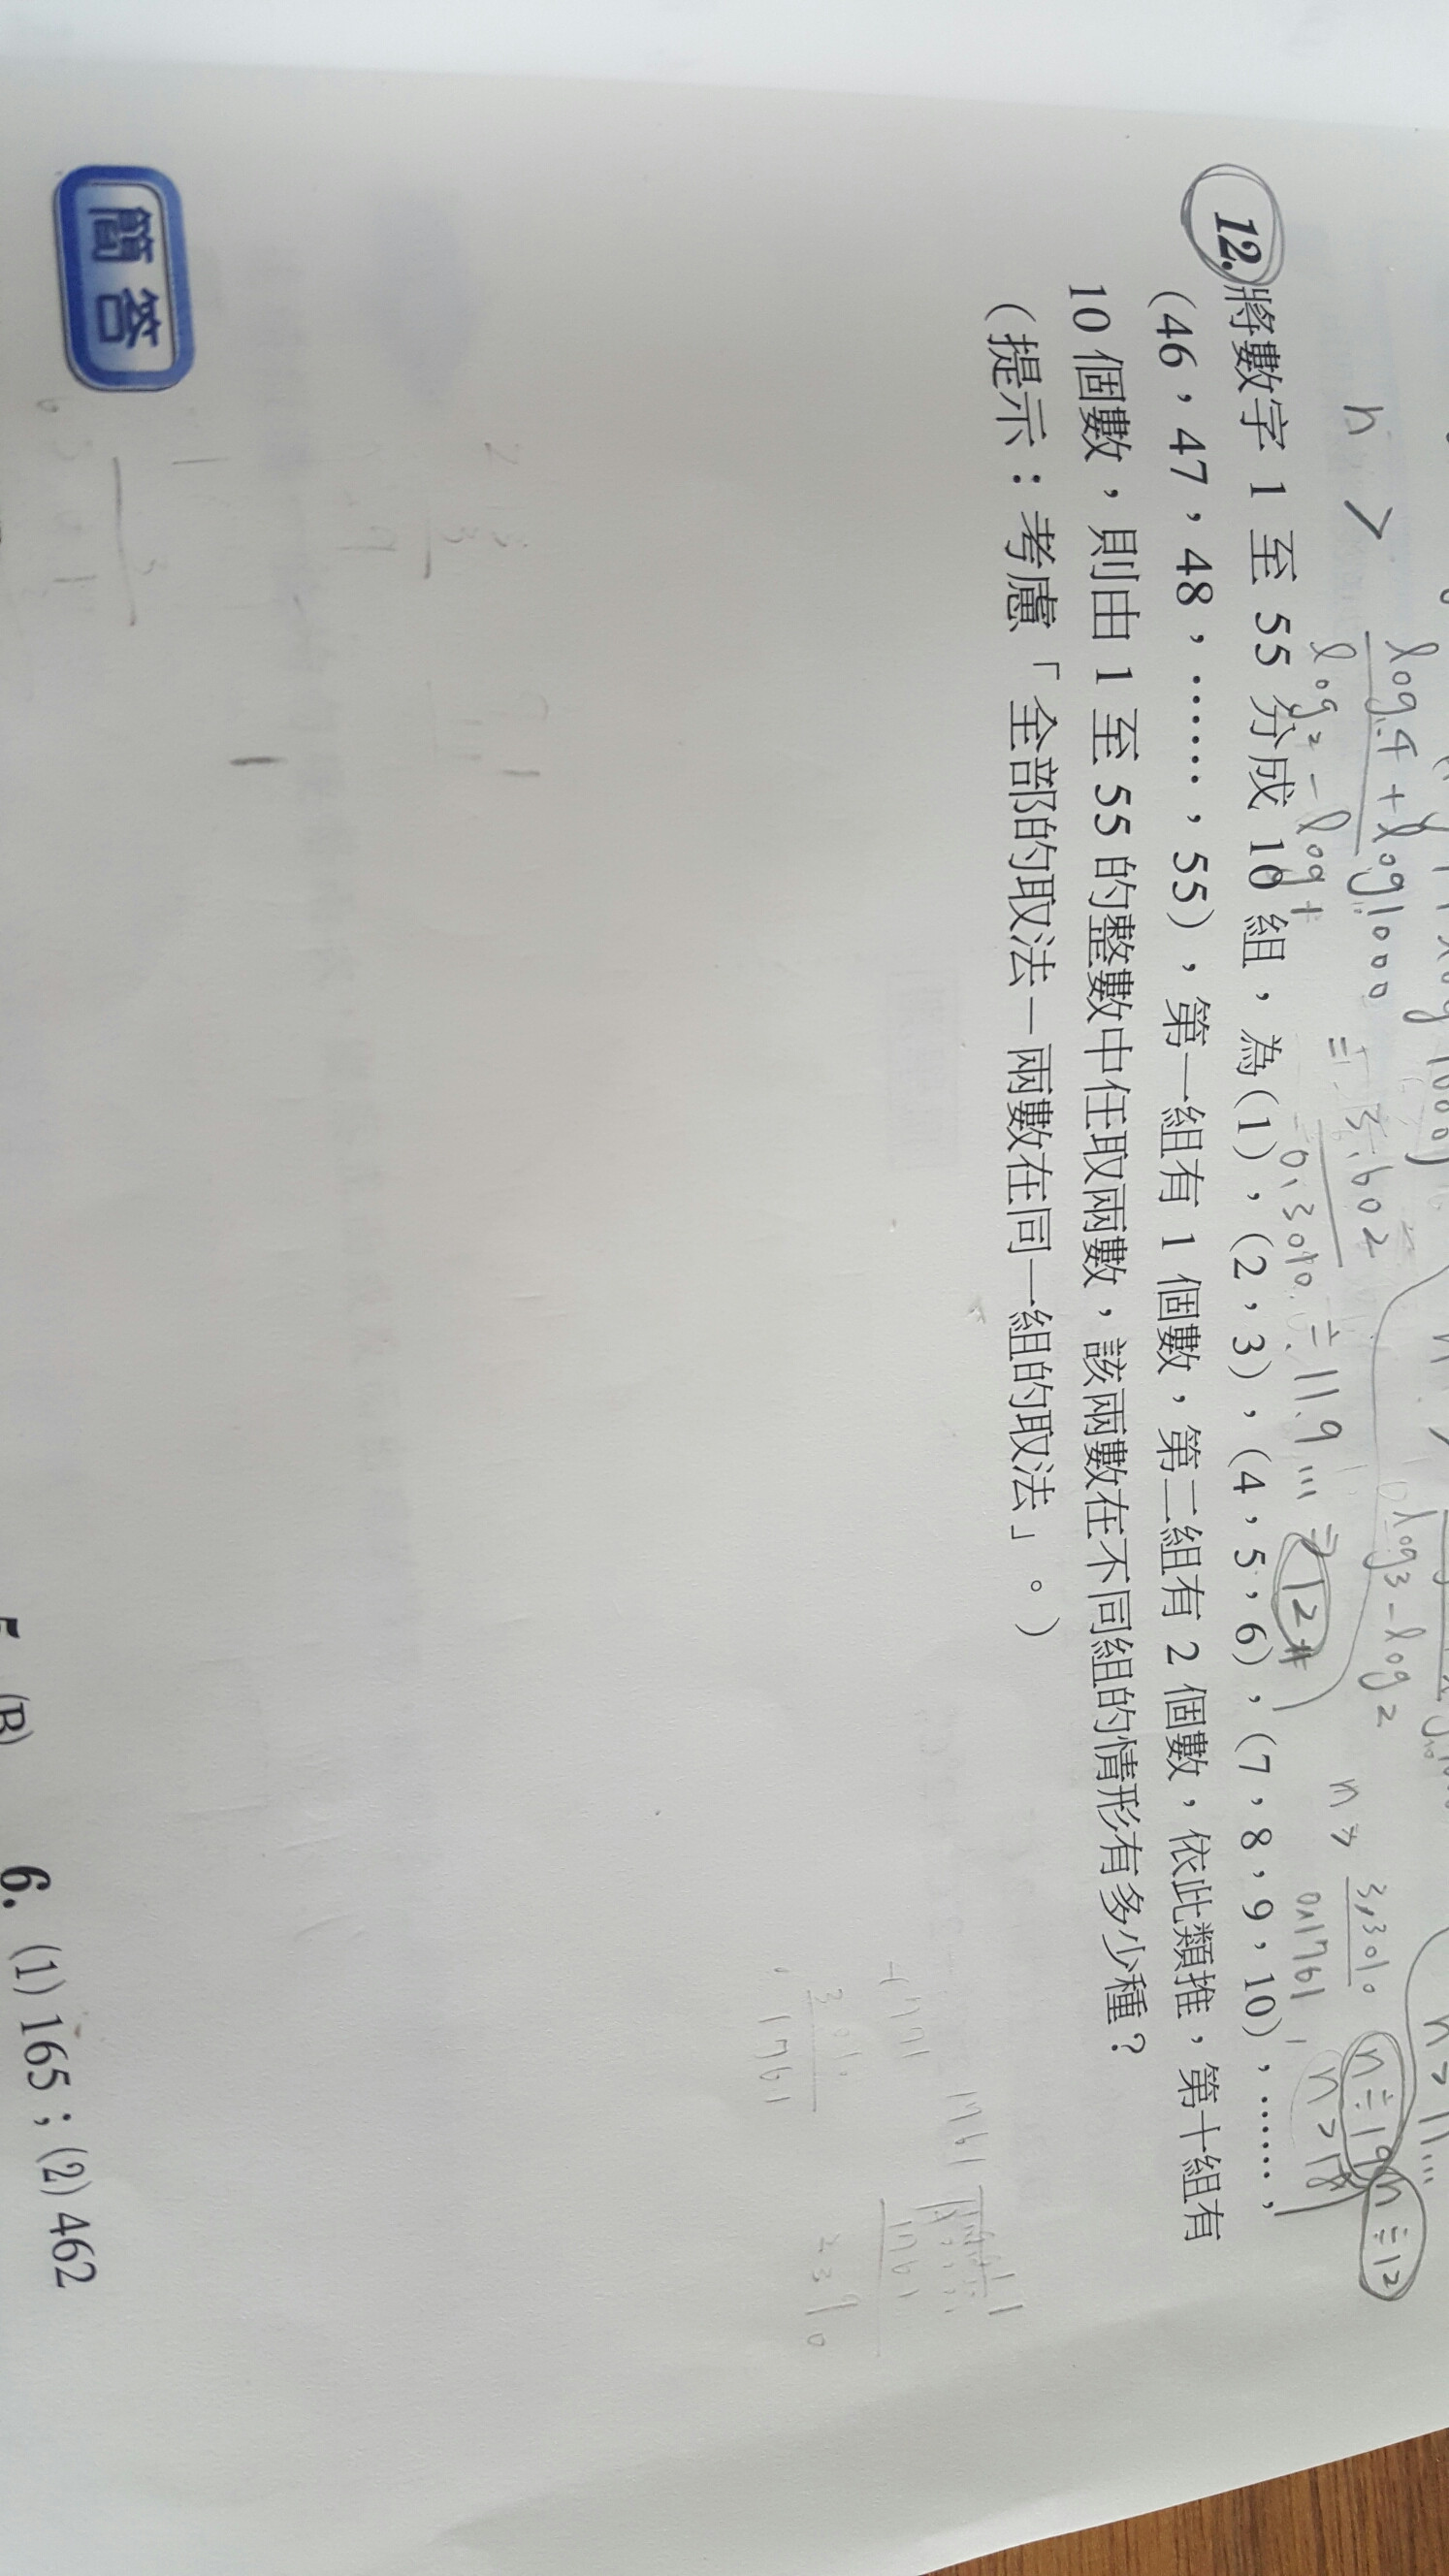 n > log 4 + log 1000
log 2 - log 1
= 3.602
0.3010
≒ 11.9...
12
log3 - log2
n > 3.3010
0.1761
n > 18
n ≒ 19
n > 11...
n ≒ 12
12. 將數字 1 至 55 分成 10 組，為(1)，(2，3)，(4，5，6)，(7，8，9，10)，……，
(46，47，48，……，55)，第一組有 1 個數，第二組有 2 個數，依此類推，第十組有
10 個數，則由 1 至 55 的整數中任取兩數，該兩數在不同組的情形有多少種？
(提示：考慮「全部的取法－兩數在同一組的取法」。)
1761
1761
2390
301
1761
簡答
5. (B)
6. (1) 165；(2) 462